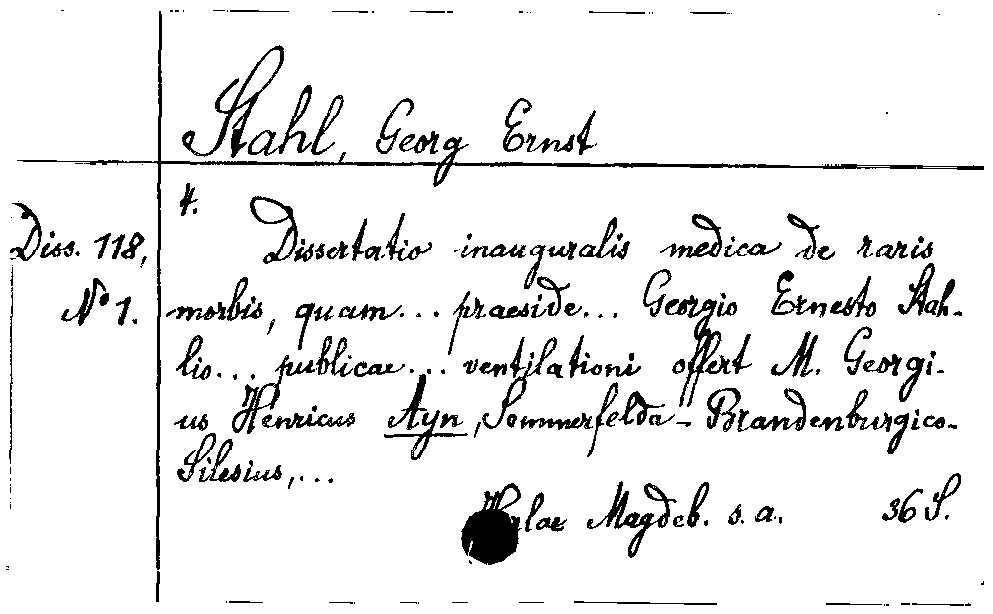 Stahl, Georg Ernst
4.
Diss. 118,
Dissertatio inauguralis medica de raris
No 1.
morbis, quam... praeside... Georgio Ernesto Stah-
lio... publicae... ventilationi offert M. Georgi-
us Henricus Ayn, Sommerfelda-Brandenburgico-
Silesius,...
Halae Magdeb. s. a. 36 S.